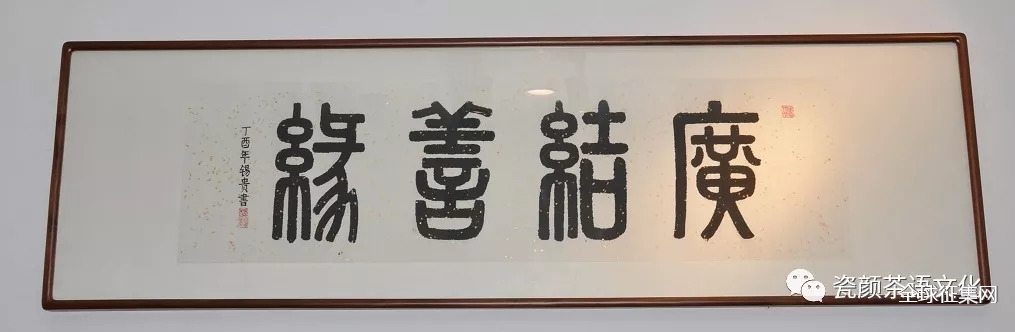 廣結善緣
丁酉年锡贵書
瓷颜茶语文化
全球征集网